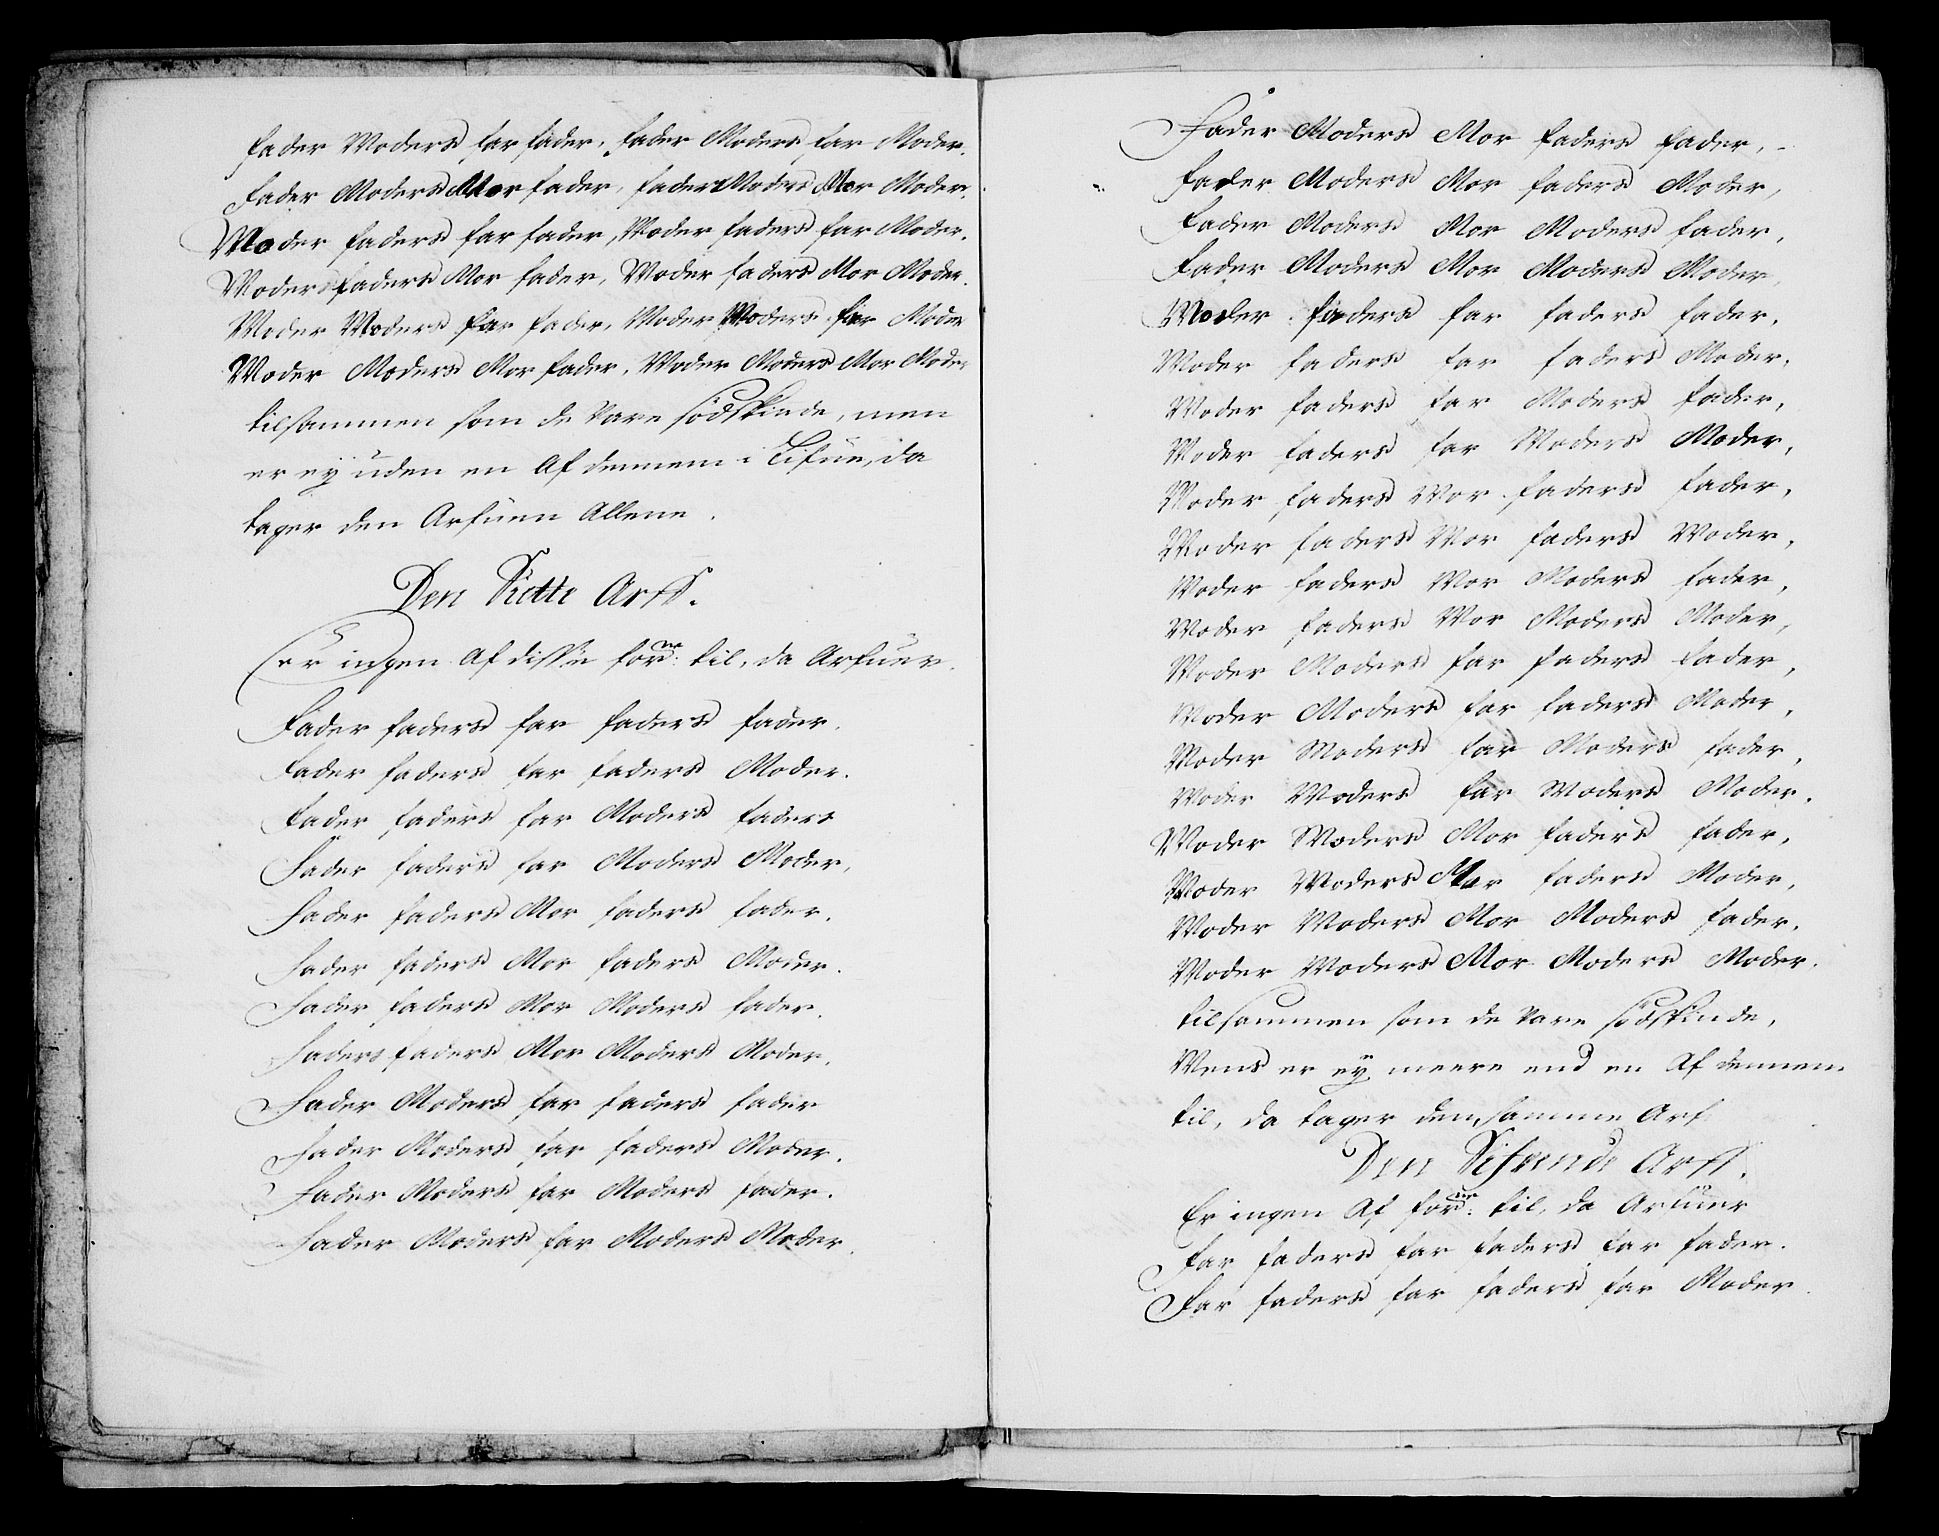 fader Moders far fader, fader Moders far Moder.
Fader Moders Mor fader, fader Moders Mor Moder.
Moder faders far fader, Moder faders far Moder.
Moders faders Mor fader, Moder faders Mor Moder.
Moder Moders far fader, Moder Moders far Moder
Moder Moders Mor fader, Moder Moders Mor Moder
tilsammen som de vare södskinde, men
er ey uden en Af dennem i Lifue, da
tager den Arfuen Allene.
Den Siette Arff.
Er ingen Af disse forne: til, da Arfuer.
Fader faders far faders fader.
Fader faders far faders Moder.
Fader faders far Moders faders
Fader faders far Moders Moder,
Fader faders Mor faders fader.
Fader faders Mor faders Moder.
Fader faders Mor Moders fader.
Faders faders Mor Moders Moder.
Fader Moders far faders fader
Fader Moders far faders Moder.
Fader Moders far Moders fader.
Fader Moders far Moders Moder.
Fader Moders Mor faders fader,
Fader Moders Mor faders Moder,
Fader Moders Mor Moders fader,
Fader Moders Mor Moders Moder,
Moder faders far faders fader,
Moder faders far faders Moder,
Moder faders far Moders fader,
Moder faders far Moders Moder,
Moder faders Mor faders fader,
Moder faders Mor faders Moder,
Moder faders Mor Moders fader,
Moder faders Mor Moders Moder,
Moder Moders far faders fader,
Moder Moders far faders Moder,
Moder Moders far Moders fader,
Moder Moders far Moders Moder.
Moder Moders Mor faders fader,
Moder Moders Mor faders Moder,
Moder Moders Mor Moders fader,
Moder Moders Mor Moders Moder.
tilsammen som de vare södskinde,
Mens er ey meere end en Af dennem
til, da tager den samme Arf
Den Sifuende Arff.
Er ingen Af forne: til, da Arfuer
Far faders far faders far fader.
Far faders far faders far Moder.